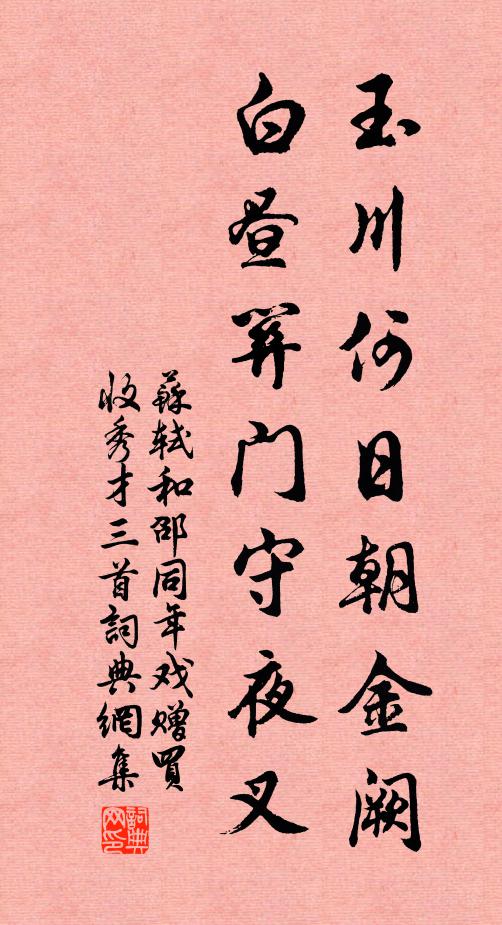 玉川何日朝金阙
白昼关门守夜叉
蘇軾和邵同年戏贈賈
收秀才三首詞典網集
詞典
网印